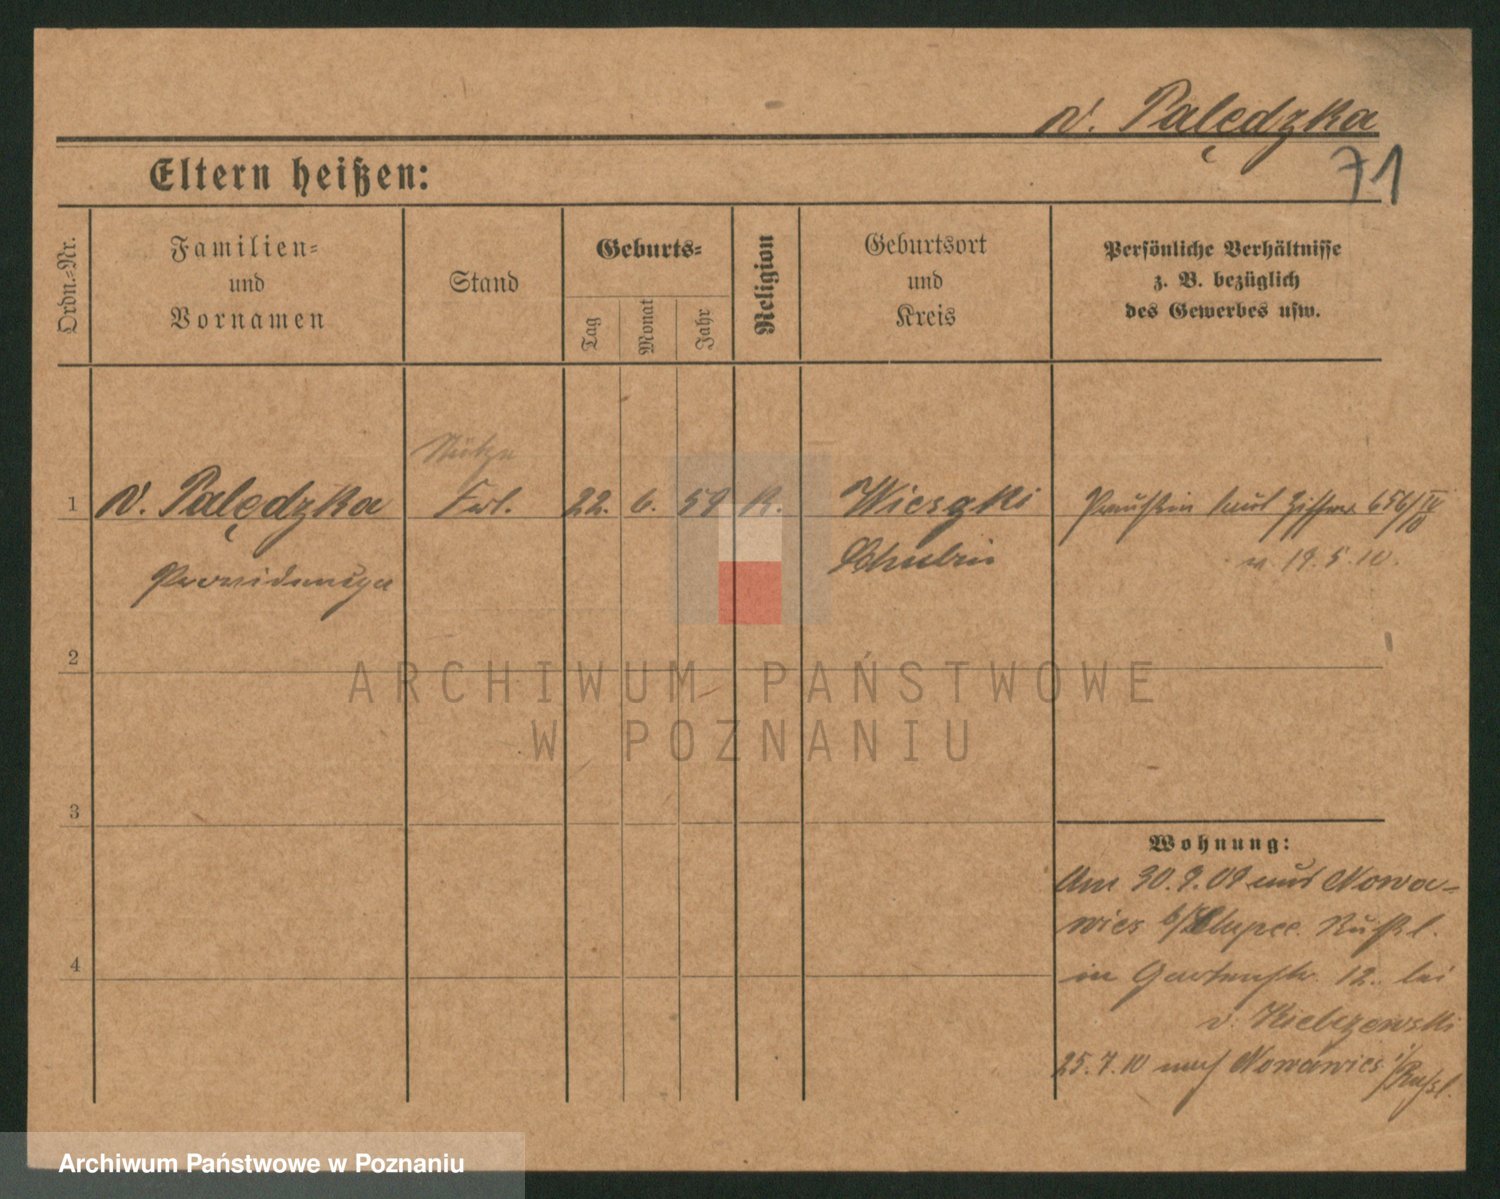 v. Palędzka
71
Eltern heißen:
Ordn.-Nr.
Familien-
und
Vornamen
Stand
Geburts-
Tag
Monat
Jahr
Religion
Geburtsort
und
Kreis
Persönliche Verhältnisse
z. B. bezüglich
des Gewerbes usw.
Stütze
1 v. Palędzka Frl. 22. 6. 59 K. Wieszki Preußin laut Ziffer 656/IV
10
Providencya Schubin v. 19.5.10.
2
ARCHIWUM PAŃSTWOWE
W POZNANIU
3
Wohnung:
Am 30.9.09 aus Nowa-
wies b/Slupce Rußl.
4 in Gartenstr. 12. bei
v.
25.7.10 nach Nowawies i/Rußl.
Archiwum Państwowe w Poznaniu